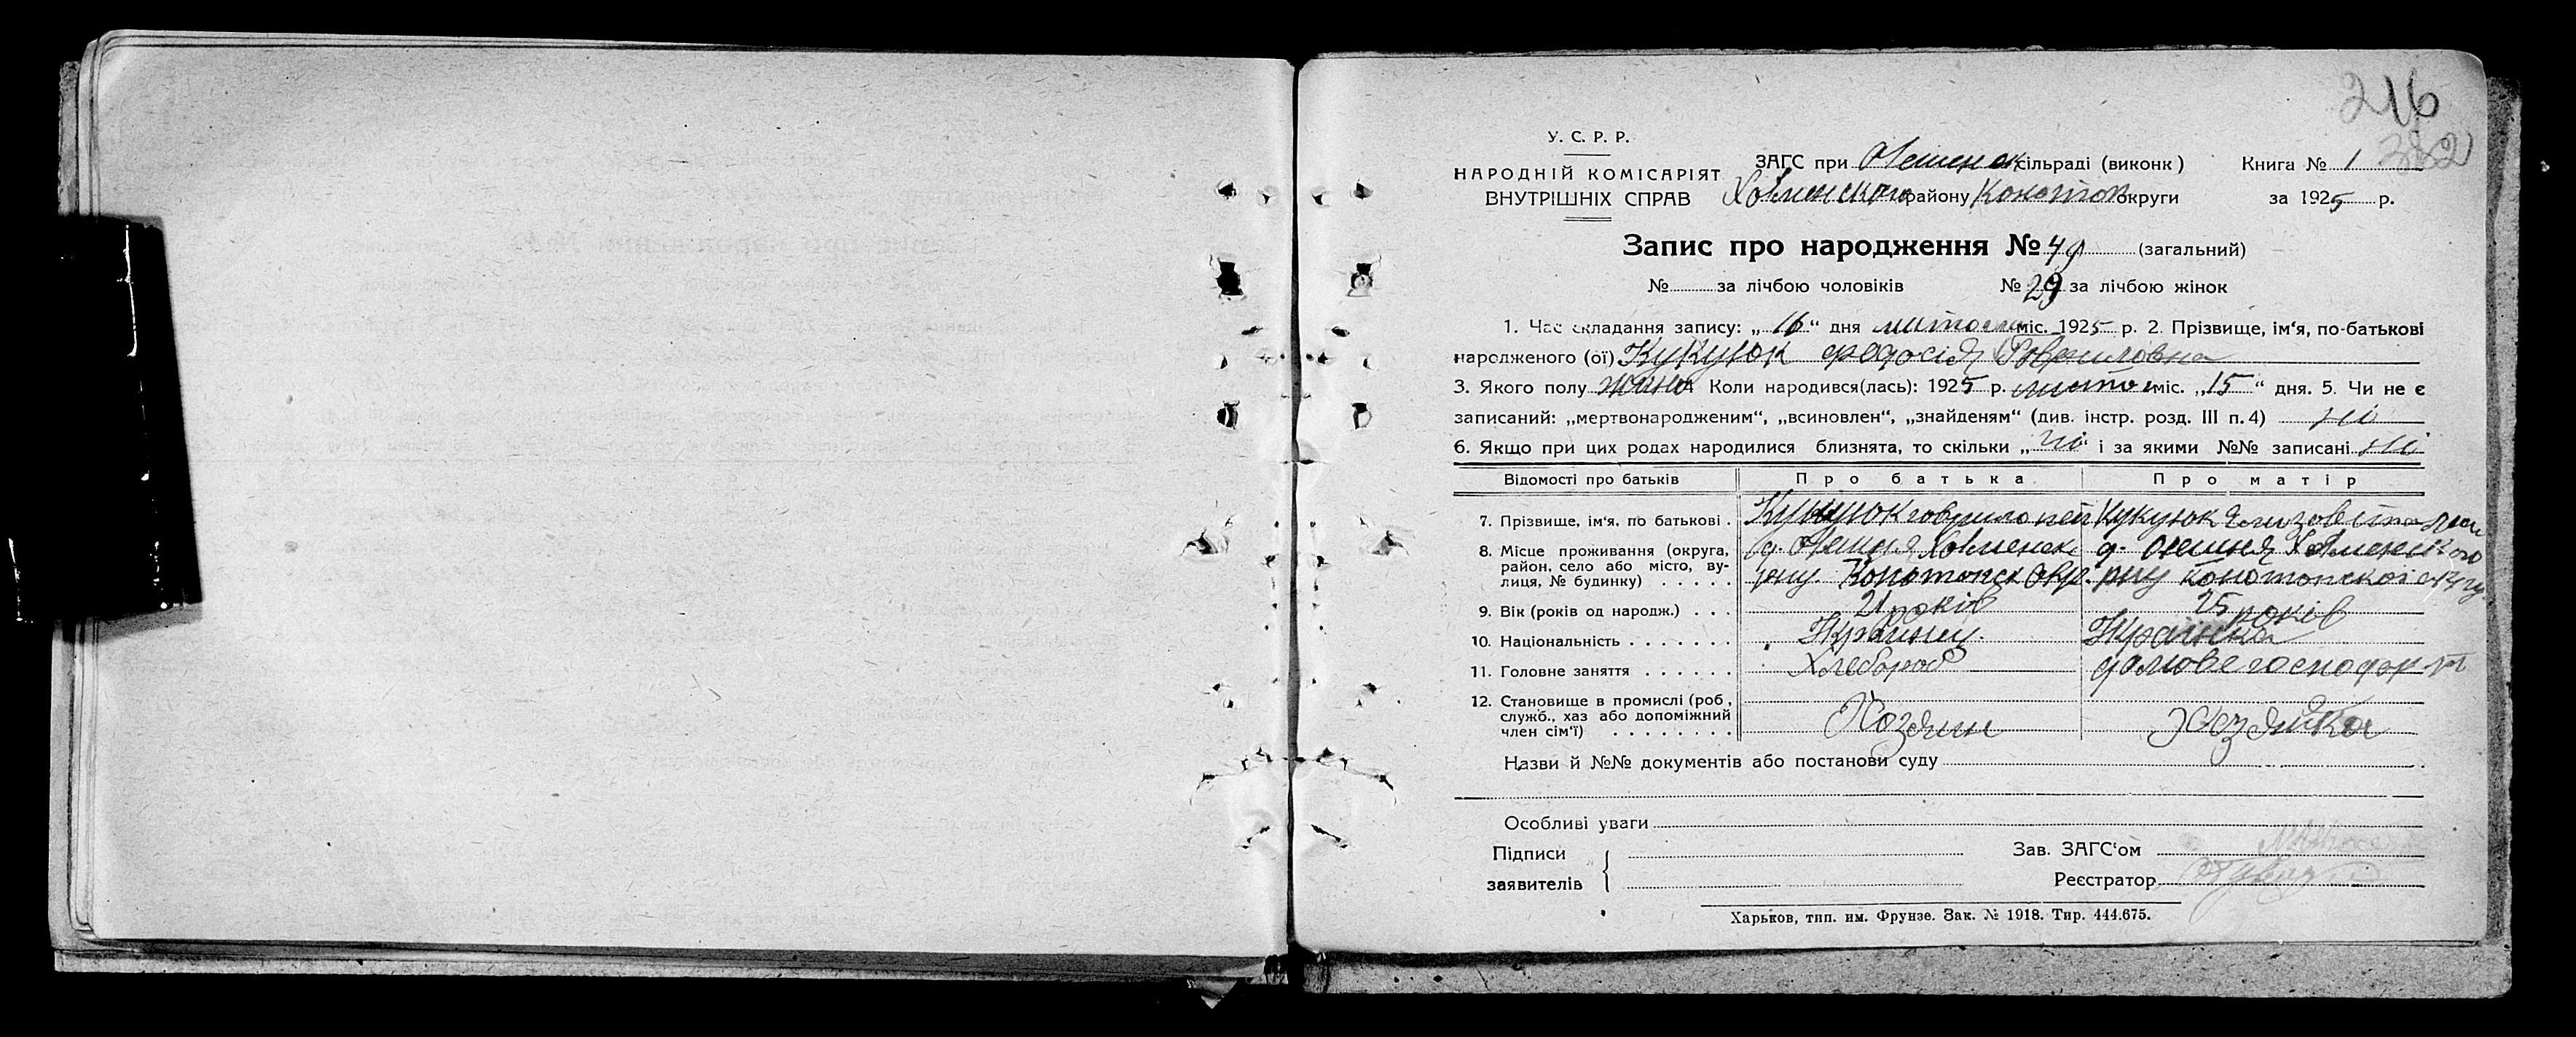 216
382
У. С. Р. Р.
НАРОДНІЙ КОМІСАРІЯТ
ВНУТРІШНІХ СПРАВ
ЗАГС при сільраді (виконк)
Книга № 1
Холменського району Конотоп округи
за 1925 р.
Запис про народження № 49 (загальний)
№ за лічбою чоловіків № 29 за лічбою жінок
1. Час складання запису: „16“ дня лютого міс. 1925 р. 2. Прізвище, ім‘я, по-батькові
народженого (ої) Кукуюк Федосія Говриловна
3. Якого полу жіно 4. Коли народився(лась): 1925 р. лютого міс. „15“ дня. 5. Чи не є
записаний: „мертвонародженим“, „всиновлен“, „знайденям“ (див. інстр. розд. III п. 4) ні
6. Якщо при цих родах народилися близнята, то скільки „ні“ і за якими №№ записані ні
Відомості про батьків Про батька Про матір
7. Прізвище, ім‘я, по батькові . Кукуюк Говрило Кукуюк Єлизовіта
8. Місце проживання (округа,
район, село або місто, ву-
лиця, № будинку) . . . . .
рну. Конотопск окр. рну Конотопскої
9. Вік (років од народж.) . . . 21 років 25 років
10. Національність . . . . . . . Украінец. Украінка
11. Головне заняття . . . . . . Хлебороб домове господар
12. Становище в промислі (роб,
служб., хаз або допоміжний
член сім‘ї) . . . . . . . .
Хозяин Хозяйка
Назви й №№ документів або постанови суду
Особливі уваги
Підписи
заявителів
Зав. ЗАГС‘ом
Реєстратор
Харьков, тип. им. Фрунзе. Зак. № 1918. Тир. 444.675.